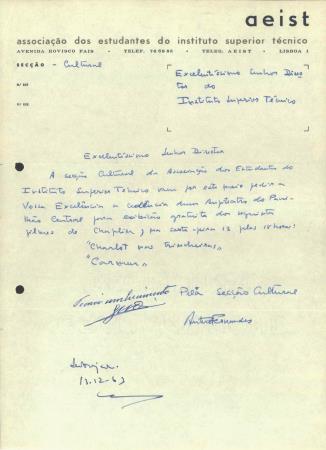 aeist
associação dos estudantes do instituto superior técnico
AVENIDA ROVISCO PAIS - TELEF. - TELEG. AEIST - LISBOA 1
SECÇÃO - Cultural
Excelentíssimo Senhor Director
do
Instituto Superior Técnico
Excelentíssimo Senhor Director
A secção Cultural da Associação dos Estudantes do
Instituto Superior Técnico vem por este meio pedir a
Vossa Excelência a cedência dum Anfiteatro do Pavi-
lhão Central para exibição gratuita dos seguintes
filmes de Chaplin, na sexta-feira 13 pelas 18 horas:
"Charlot nas Trincheiras"
"Carmen"
Tomei conhecimento
Pela Secção Cultural
Fernandes
13-12-63